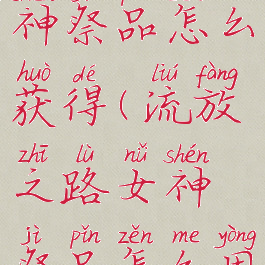 神祭品怎么
huò dé liú fàng
获得(流放
zhī lù nǚ shén
之路女神
jì pǐn zěn me yòng
祭品怎么用